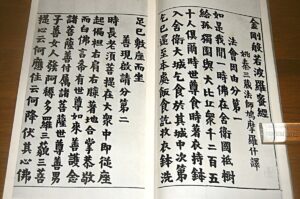 金剛般若波羅蜜經
姚秦三藏法師鳩摩羅什譯
法會因由分第一
如是我聞一時佛在舍衛國祇樹
給孤獨園與大比丘衆千二百五
十人俱爾時世尊食時著衣持鉢
入舍衛大城乞食於其城中次第
乞已還至本處飯食訖收衣鉢洗
足已敷座而坐
善現啟請分第二
時長老須菩提在大衆中即從座
起偏袒右肩右膝著地合掌恭敬
而白佛言希有世尊如來善護念
諸菩薩善付囑諸菩薩世尊善男
子善女人發阿耨多羅三藐三菩
提心云何應住云何降伏其心佛